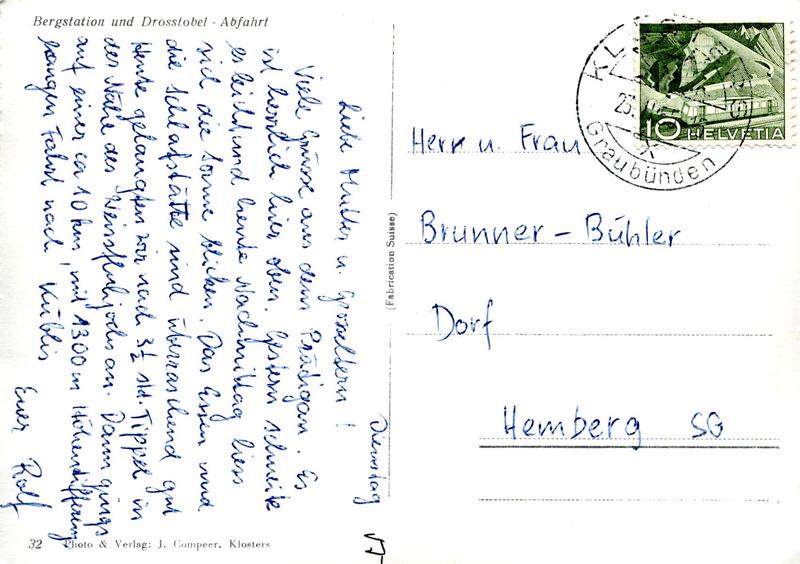 Bergstation und Drosstobel - Abfahrt
Dienstag
Liebe Mutter u. Grosseltern!
Viele Grüsse aus dem Prädigau. Es
ist herrlich hier oben. Gestern schneite
es leicht und heute Nachmittag liess
sich die Sonne blicken. Das Essen und
die Schlafstätte sind überraschend gut
Heute gelangten wir nach 3½ Std. Tippel in
der Nähe des Weissfluhjoch an. Dann gings
auf einer ca 10 km, mit 1300 m Höhendifferenz
langen Fahrt nach Küblis
Euer Rolf
32 Photo & Verlag: J. Compeer, Klosters
(Fabrication Suisse)
Graubünden
10 HELVETIA
Herr u. Frau
Brunner - Bühler
Dorf
Hemberg SG